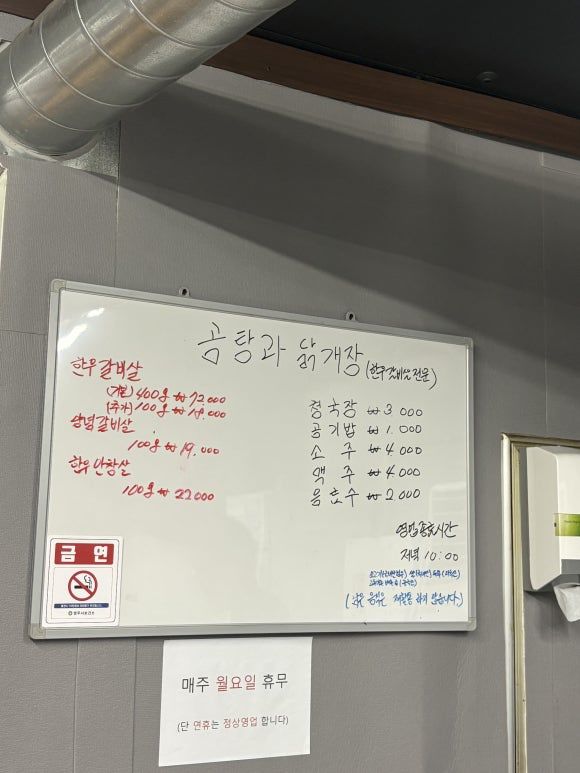 곰탕과 닭개장 (한우갈비살전문)
한우갈비살
(기본) 400g ₩72000
(추가) 100g ₩18.000
양념갈비살
100g ₩19.000
한우안창살
100g ₩22000
청국장 ₩3000
공기밥 ₩1.000
소주 ₩4000
맥주 ₩4000
음료수 ₩2.000
영업종료시간
저녁 10:00
(남은 음식은 재활용 하지 않습니다.)
금연
매주 월요일 휴무
(단 연휴는 정상영업 합니다)